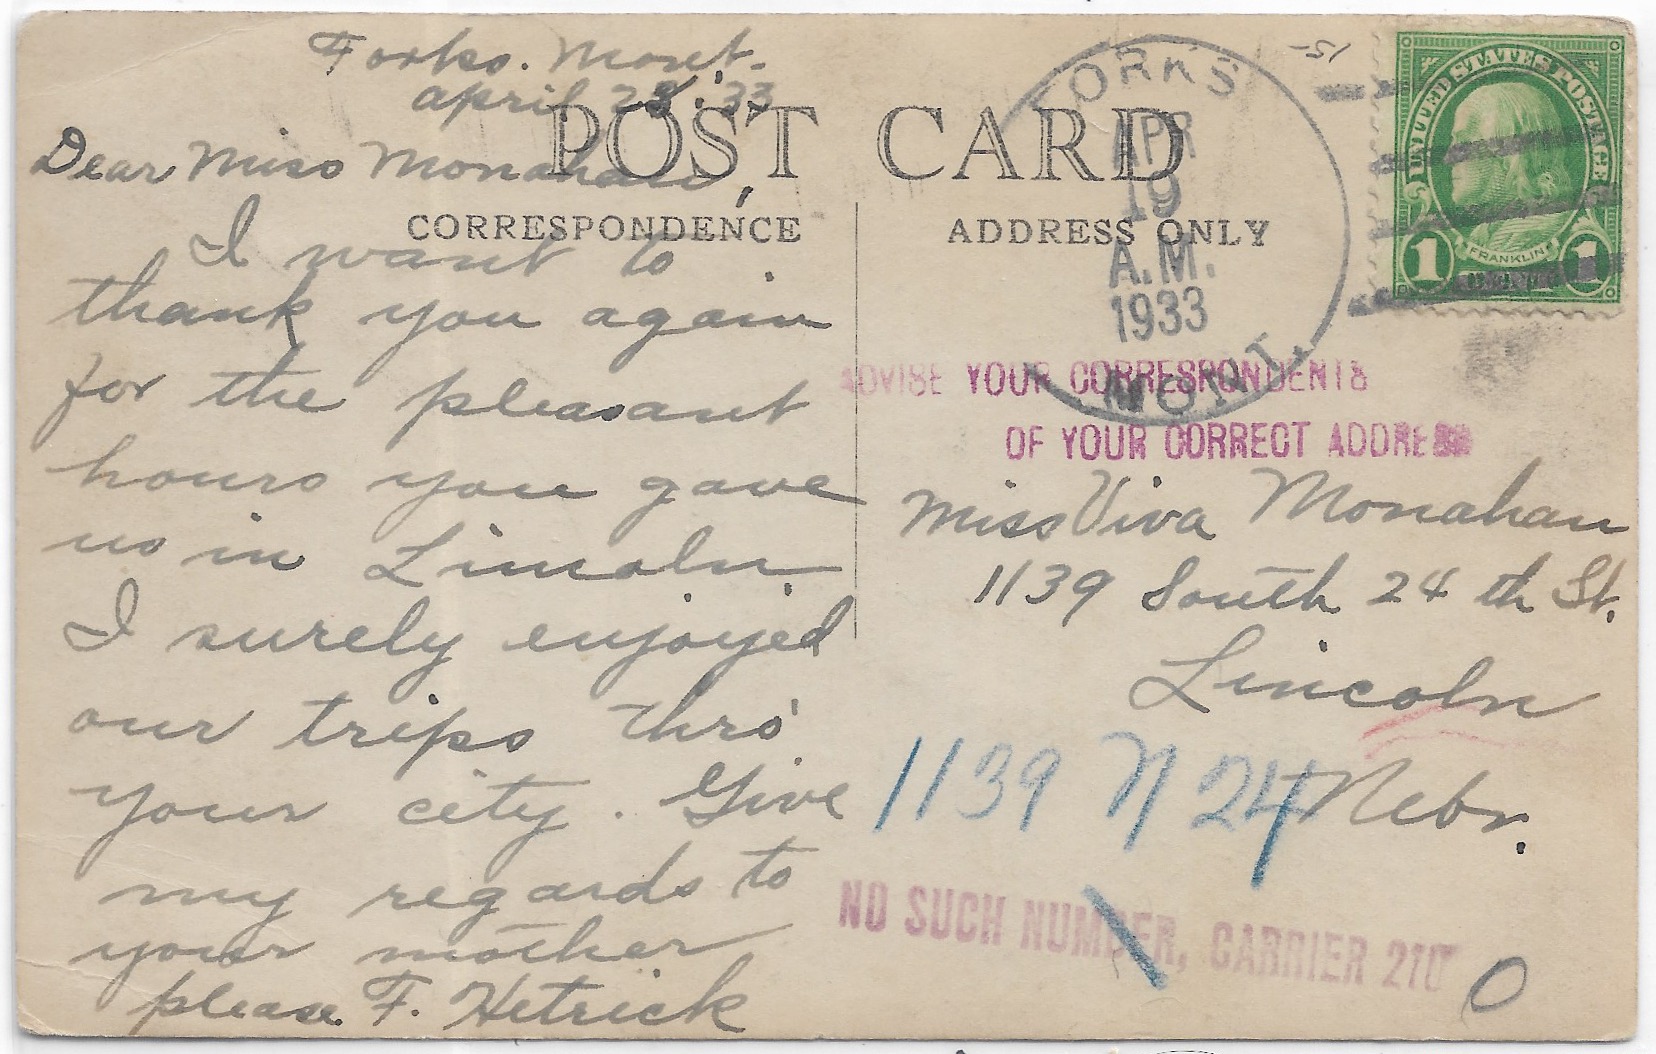 Forks. Mont.
April 28, '33
POST CARD
Dear Miss Monahan,
CORRESPONDENCE
I want to
thank you again
for the pleasant
hours you gave
us in Lincoln.
I surely enjoyed
our trips thro'
your city. Give
my regards to
your mother
please. F. Hetrick
FORKS
APR
19
A.M.
1933
MONT.
-51
UNITED STATES POSTAGE
FRANKLIN
1 1
ADDRESS ONLY
ADVISE YOUR CORRESPONDENTS
OF YOUR CORRECT ADDRESS
Miss Viva Monahan
1139 South 24 th St.
Lincoln
Nebr.
1139 N 24
NO SUCH NUMBER, CARRIER 210
O